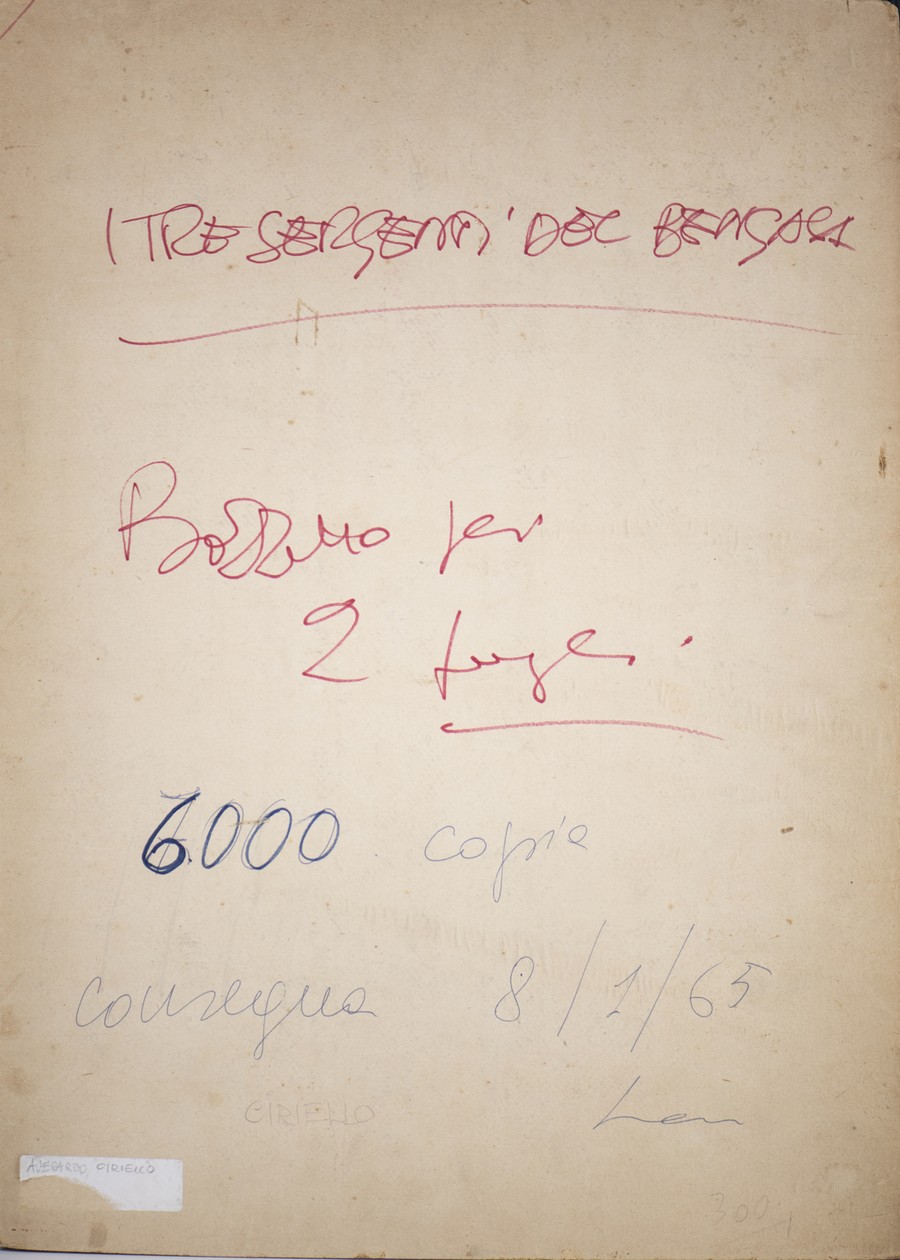 I TRE SERGENTI DEL BENGALA
Bozzetto per
2 fogli
6000 copie
consegna 8/1/65
CIRIELLO
AVERARDO CIRIELLO
300